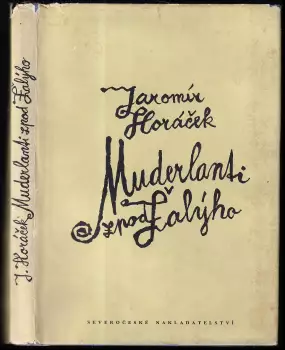 J. Horáček Muderlanti zpod Žalýho
Jaromír
Horáček
Muderlanti
zpod
Žalýho
SEVEROČESKÉ NAKLADATELSTVÍ